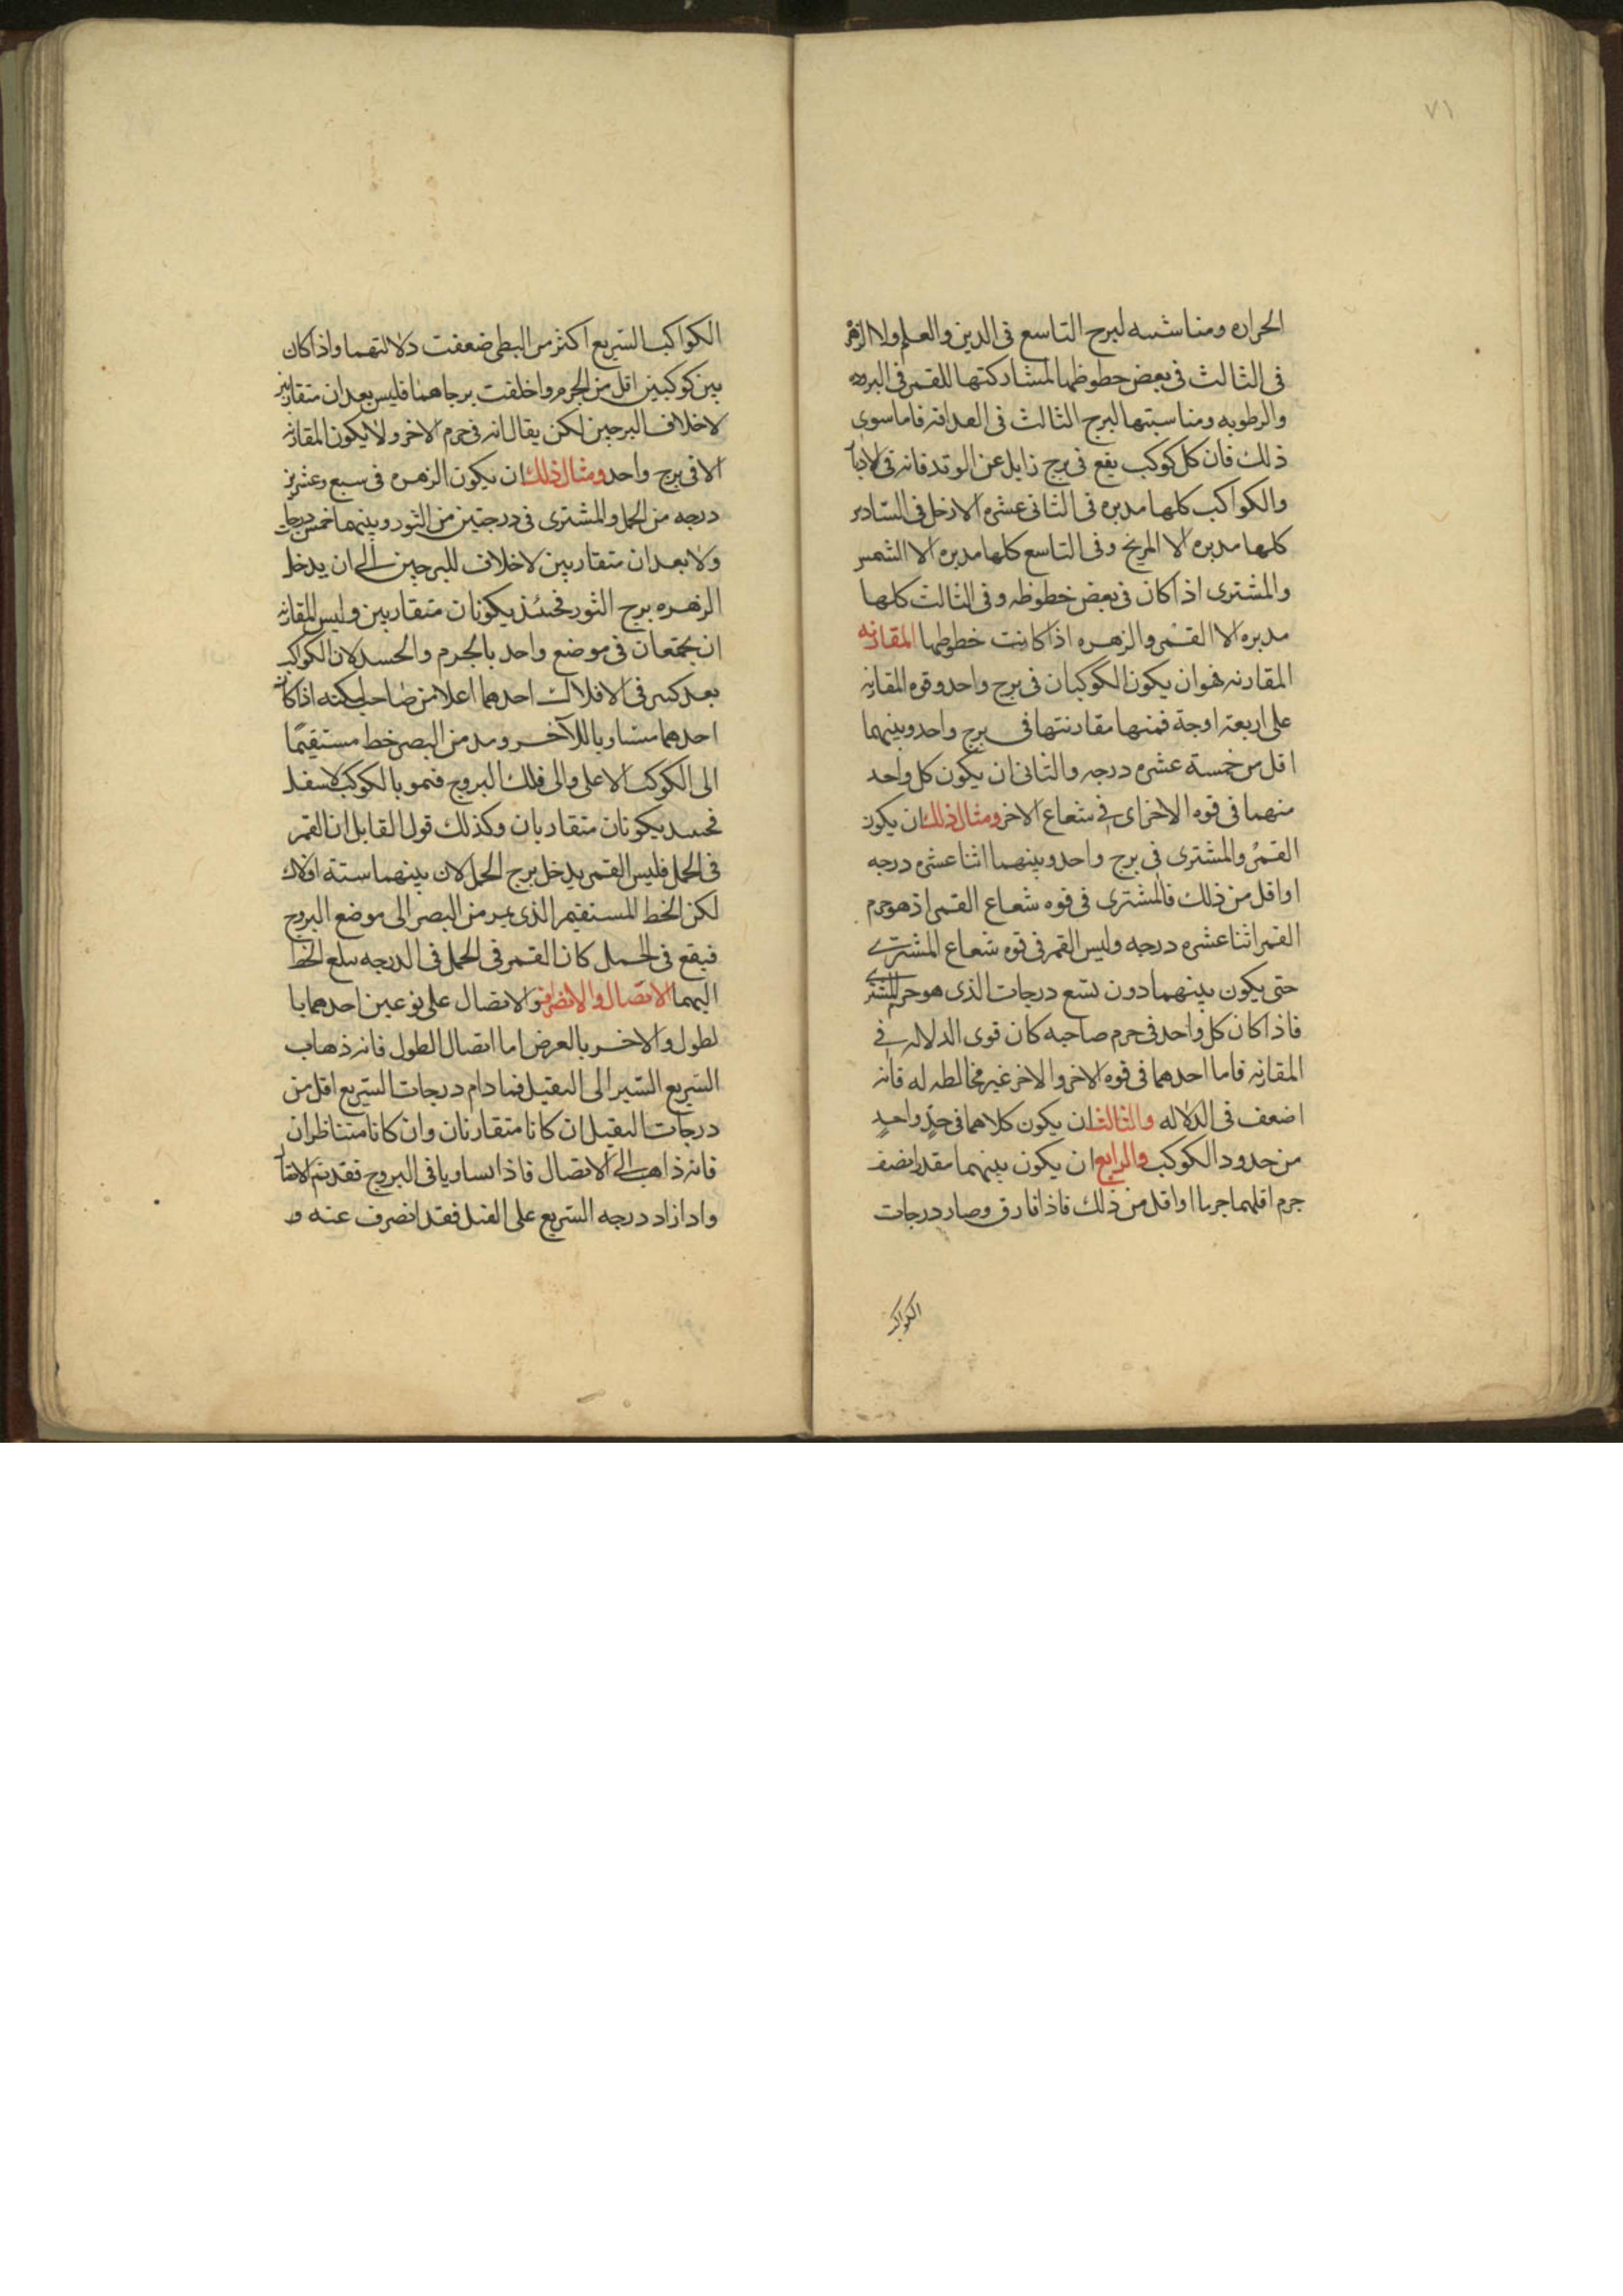 ٧١
الحراره ومناسبته لبرح التاسع فى الدين والعلم ولا الزهره
فى الثالث فى بعض حطوظها لمشاركتها للقمر فى البرده
والرطوبه ومناسبتها لبرج الثالث فى العداقه فاما سوى
ذلك فان كل كوكب يقع فى برج زايل عن الوتد فانه فى الادبار
والكواكب كلها مدبره فى الثانى عشره الا زحل فى السادس
كلها مدبره الا المريخ وفى التاسع كلها مدبره الا الشمس
والمشترى اذا كان فى بعض خطوظه وفى الثالث كلها
مدبره الا القمر والزهره اذا كانت خطوطها المقارنه
المقارنه فهو ان يكون الكوكبان فى برج واحد وقوه المقارنه
على اربعة اوجة فمنها مقارنتها فى برج واحد وبينهما
اقل من خمسة عشره درجه والثانى ان يكون كل واحد
منهما فى قوه الاخر اى فى شعاع الاخر ومثال ذلك ان يكون
القمر والمشترى فى برج واحد وبينهما اثنا عشره درجه
او اقل من ذلك فالمشترى فى قوه شعاع القمر اذ هو جرم
القمر اثنا عشره درجه وليس القمر فى قوه شعاع المشترى
حتى يكون بينهما دون تسع درجات الذى هو جرم المشترى
فاذا كان كل واحد فى جرم صاحبه كان قوى الدلاله فى
المقارنه فاما احدهما فى قوه الاخر والاخر غير مخالطه له فانه
اضعف فى الدلاله والثالث ان يكون كلاهما فى حدٍ واحدٍ
من حدود الكوكب والرابع ان يكون بينهما مقدار نصف
جرم اقلهما جرما او اقل من ذلك فاذا فارق وصار درجات
الكواكب
الكواكب السريع اكثر من البطى ضعفت دلالتهما واذا كان
بين كوكبين اقل من الجرم واخلفت برجاهما فليس بعدان متقاربين
لاخلاف البرجين لكن يقال انه فى جرم الاخر ولا يكون المقارنه
الا فى برج واحد ومثال ذلك ان يكون الزهره فى سبع وعشرين
درجه من الحمل والمشترى فى درجتين من الثور وبينهما خمس درجات
ولا بعدان متقاربين لاخلاف للبرجين الى ان يدخل
الزهره برج الثور فحينئذ يكونان متقاربين وليس المقارنه
ان يجتمعان فى موضع واحد بالجرم والجسد لان الكواكب
بعد كسر فى الافلاك احدهما اعلا من صاحبه لكنه اذا كان
احدهما متساويا للآخر ومد من البصر خط مستقيمًا
الى الكوكب الاعلى والى فلك البروج فنمو بالكوكب الاسفل
فحسد يكونان متقاربان وكذلك قول القايل ان القمر
فى الحمل فليس القمر يدخل برج الحمل لان بينهما ستة افلاك
لكن الخط المستقيم الذى يمر من البصر الى موضع البروج
فيقع فى الحمل كان القمر فى الحمل فى الدرجه يبلغ الخط
اليهما الاتصال والانصراف والاتصال على نوعين احدهما با
لطول والاخر بالعرض اما اتصال الطول فانه ذهاب
السريع السير الى الثقيل فما دام درجات السريع اقل من
درجات الثقيل ان كانا متقارنان وان كانا متناظران
فانه ذاهب الى الاتصال فاذا تساويا فى البروج فقد تم الاتصال
واذا زاد درجه السريع على الثقيل فقد انصرف عنه و